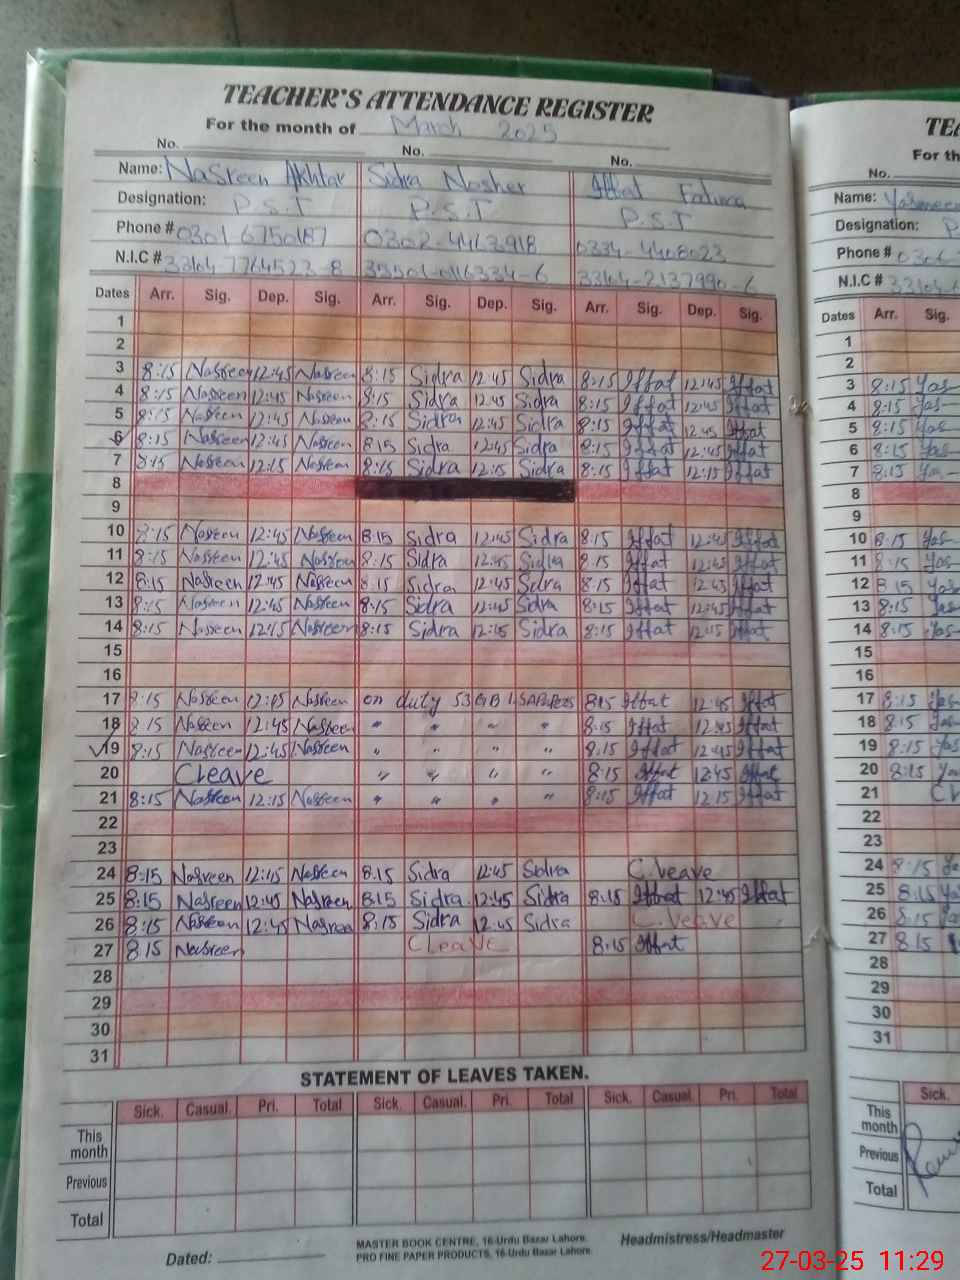 TEACHER'S ATTENDANCE REGISTER
For the month of March 2025
No. No. No.
Name: Nasreen Akhtar Sidra Nasher Iffat Fatima
Designation: P.S.T P.S.T P.S.T
Phone # 0301 6750187 0302-4463918 0334-4408023
N.I.C #
Dates Arr. Sig. Dep. Sig. Arr. Sig. Dep. Sig. Arr. Sig. Dep. Sig.
1
2
3 8:15 Nasreen 12:45 Nasreen 8:15 Sidra 12:45 Sidra 8:15 Iffat 12:45 Iffat
4 8:15 Nasreen 12:45 Nasreen 8:15 Sidra 12:45 Sidra 8:15 Iffat 12:45 Iffat
5 8:15 Nasreen 12:45 Nasreen 8:15 Sidra 12:45 Sidra 8:15 Iffat 12:45 Iffat
6 8:15 Nasreen 12:45 Nasreen 8:15 Sidra 12:45 Sidra 8:15 Iffat 12:45 Iffat
7 8:15 Nasreen 12:15 Nasreen 8:15 Sidra 12:15 Sidra 8:15 Iffat 12:15 Iffat
8
9
10 8:15 Nasreen 12:45 Nasreen 8:15 Sidra 12:45 Sidra 8:15 Iffat 12:45 Iffat
11 8:15 Nasreen 12:45 Nasreen 8:15 Sidra 12:45 Sidra 8:15 Iffat 12:45 Iffat
12 8:15 Nasreen 12:45 Nasreen 8:15 Sidra 12:45 Sidra 8:15 Iffat 12:45 Iffat
13 8:15 Nasreen 12:45 Nasreen 8:15 Sidra 12:45 Sidra 8:15 Iffat 12:45 Iffat
14 8:15 Nasreen 12:15 Nasreen 8:15 Sidra 12:15 Sidra 8:15 Iffat 12:15 Iffat
15
16
17 8:15 Nasreen 12:45 Nasreen on duty 8:15 Iffat 12:45 Iffat
18 8:15 Nasreen 12:45 Nasreen " " " " 8:15 Iffat 12:45 Iffat
19 8:15 Nasreen 12:45 Nasreen " " " " 8:15 Iffat 12:45 Iffat
20 C leave " " " " 8:15 Iffat 12:45 Iffat
21 8:15 Nasreen 12:15 Nasreen " " " " 8:15 Iffat 12:15 Iffat
22
23
24 8:15 Nasreen 12:45 Nasreen 8:15 Sidra 12:45 Sidra C.leave
25 8:15 Nasreen 12:45 Nasreen 8:15 Sidra 12:45 Sidra 8:15 Iffat 12:45 Iffat
26 8:15 Nasreen 12:45 Nasreen 8:15 Sidra 12:45 Sidra C.leave
27 8:15 Nasreen C leave 8:15 Iffat
28
29
30
31
STATEMENT OF LEAVES TAKEN.
Sick. Casual. Pri. Total Sick. Casual. Pri. Total Sick. Casual. Pri. Total
This month
Previous
Total
Dated:
MASTER BOOK CENTRE, 16-Urdu Bazar Lahore.
PRO FINE PAPER PRODUCTS, 16-Urdu Bazar Lahore.
Headmistress/Headmaster
For the
No.
Name:
Designation:
Phone #
N.I.C #
Dates Arr. Sig.
1
2
3 8:15
4 8:15
5 8:15
6 8:15
7 8:15
8
9
10 8:15
11 8:15
12 8:15
13 8:15
14 8:15
15
16
17 8:15
18 8:15
19 8:15
20 8:15
21
22
23
24 8:15
25 8:15
26 8:15
27 8:15
28
29
30
31
Sick.
This month
Previous
Total
27-03-25 11:29